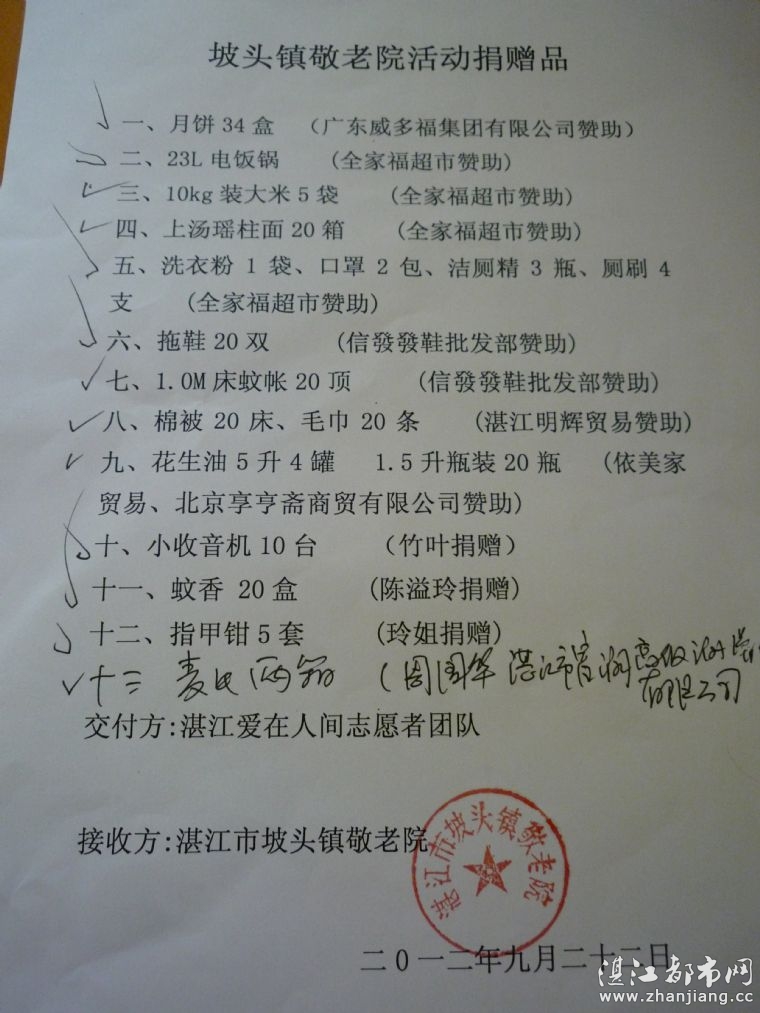 坡头镇敬老院活动捐赠品
一、月饼 34 盒 （广东威多福集团有限公司赞助）
二、23L 电饭锅 (全家福超市赞助)
三、10kg 装大米 5 袋 (全家福超市赞助)
四、上汤瑶柱面 20 箱 (全家福超市赞助)
五、洗衣粉 1 袋、口罩 2 包、洁厕精 3 瓶、厕刷 4
支 (全家福超市赞助)
六、拖鞋 20 双 (信發發鞋批发部赞助)
七、1.0M 床蚊帐 20 顶 (信發發鞋批发部赞助)
八、棉被 20 床、毛巾 20 条 (湛江明辉贸易赞助)
九、花生油 5 升 4 罐 1.5 升瓶装 20 瓶 (依美家
贸易、北京享亨斋商贸有限公司赞助)
十、小收音机 10 台 （竹叶捐赠）
十一、蚊香 20 盒 (陈溢玲捐赠)
十二、指甲钳 5 套 (玲姐捐赠)
十三 (周国华 湛江市
有限公司
交付方:湛江爱在人间志愿者团队
接收方:湛江市坡头镇敬老院
湛江市坡头镇敬老院
二0一二年九月二十二日
湛江都市网
www.zhanjiang.cc